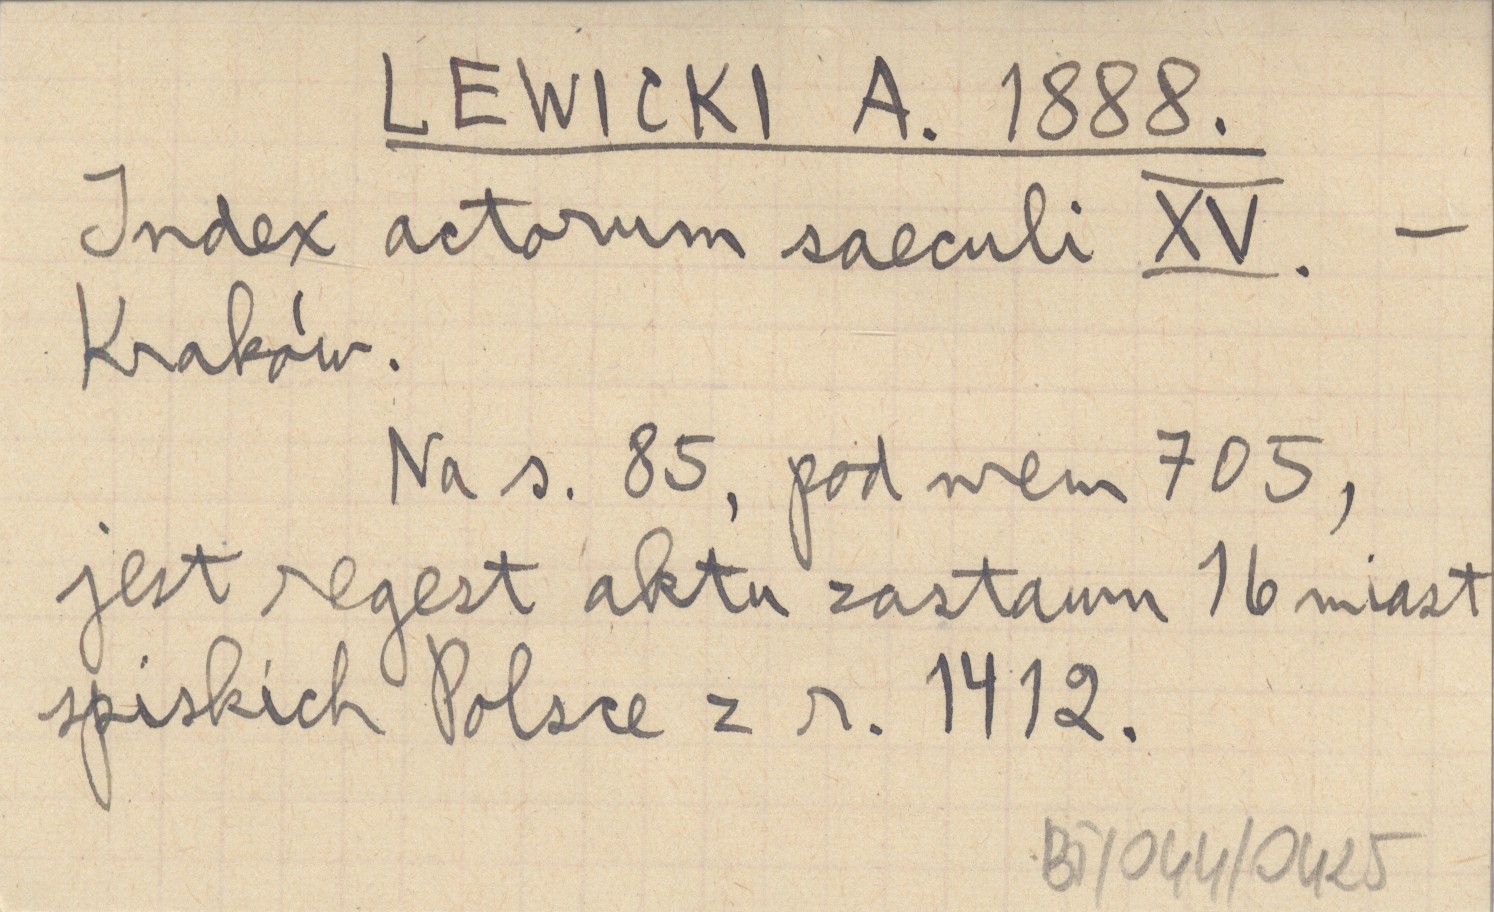 LEWICKI A. 1888.
Index actorum saeculi XV. –
Kraków.
Na s. 85, pod nrem 705,
jest regest aktu zastawu 16 miast
spiskich Polsce z r. 1412.
BJ/044/0425